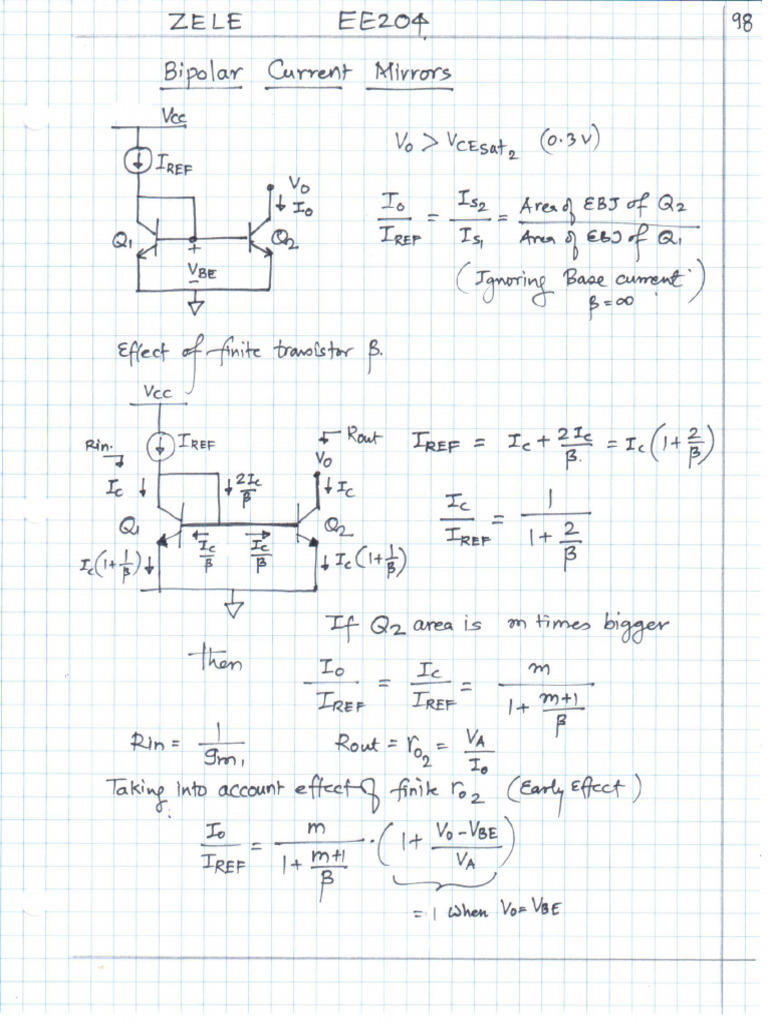 ZELE EE204 98
Bipolar Current Mirrors
Vcc
IREF
Vo > VCEsat2 (0.3V)
Vo
Io
Io/IREF = Is2/Is1 = Area of EBJ of Q2/Area of EBJ of Q1
Q1 + Q2
VBE
-
(Ignoring Base current)
β=∞
Effect of finite transistor β.
Vcc
Rin. IREF Rout
Vo
IREF = Ic + 2Ic/β. = Ic(1+2/β)
Ic 2Ic/β Ic
Ic/IREF = 1/(1+2/β)
Q1 Q2
Ic(1+1/β) Ic/β Ic/β Ic(1+1/β)
If Q2 area is m times bigger
then Io/IREF = Ic/IREF = m/(1+(m+1)/β)
Rin = 1/gm1 Rout = ro2 = VA/Io
Taking into account effect of finite ro2 (Early Effect)
Io/IREF = m/(1+(m+1)/β) · (1+(Vo-VBE)/VA)
= 1 when Vo = VBE